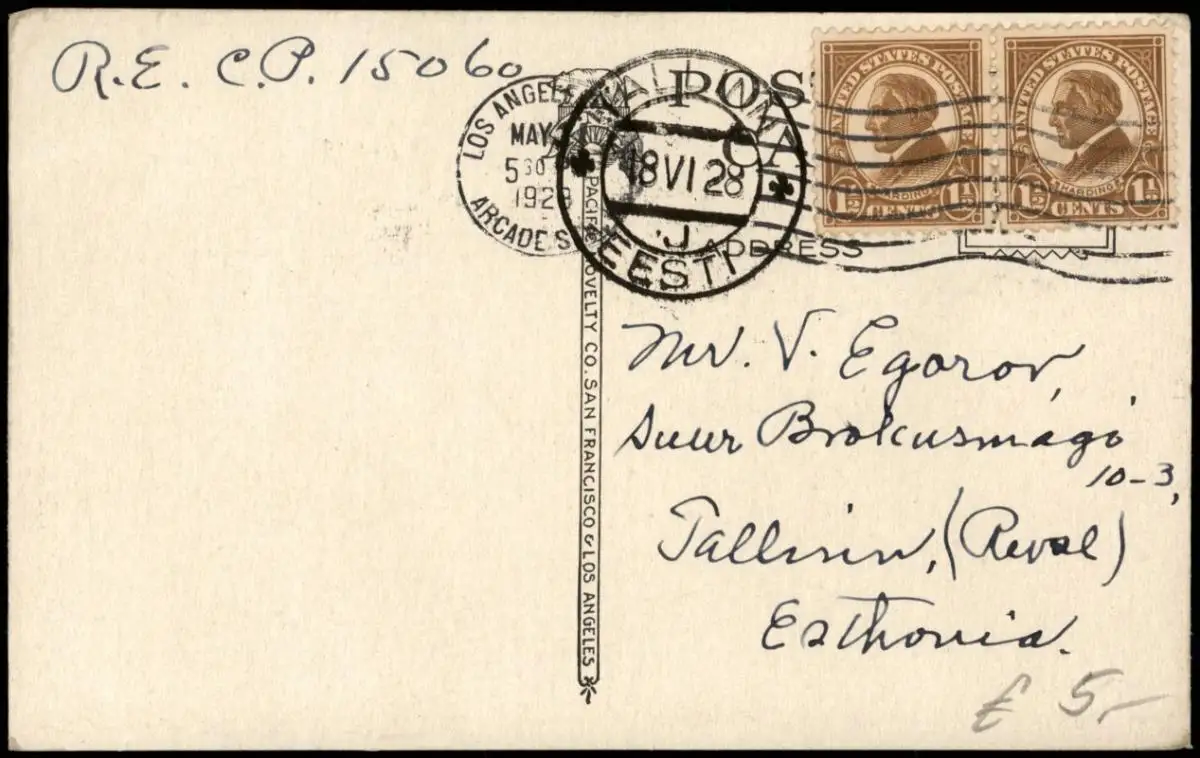 R.E. C.P. 15060
LOS ANGELE
MAY
5 30
1928
ARCADE S
TALLINNA
18 VI 28
J
EESTI
POS
CA
ADDRESS
UNITED STATES POSTAGE
HARDING
1½ CENTS 1½
UNITED STATES POSTAGE
HARDING
1½ CENTS 1½
PACIFIC NOVELTY CO. SAN FRANCISCO & LOS ANGELES
Mr. V. Egorov,
Suur Brokusmägi
10-3,
Tallinn, (Reval)
Esthonia.
£ 5,-